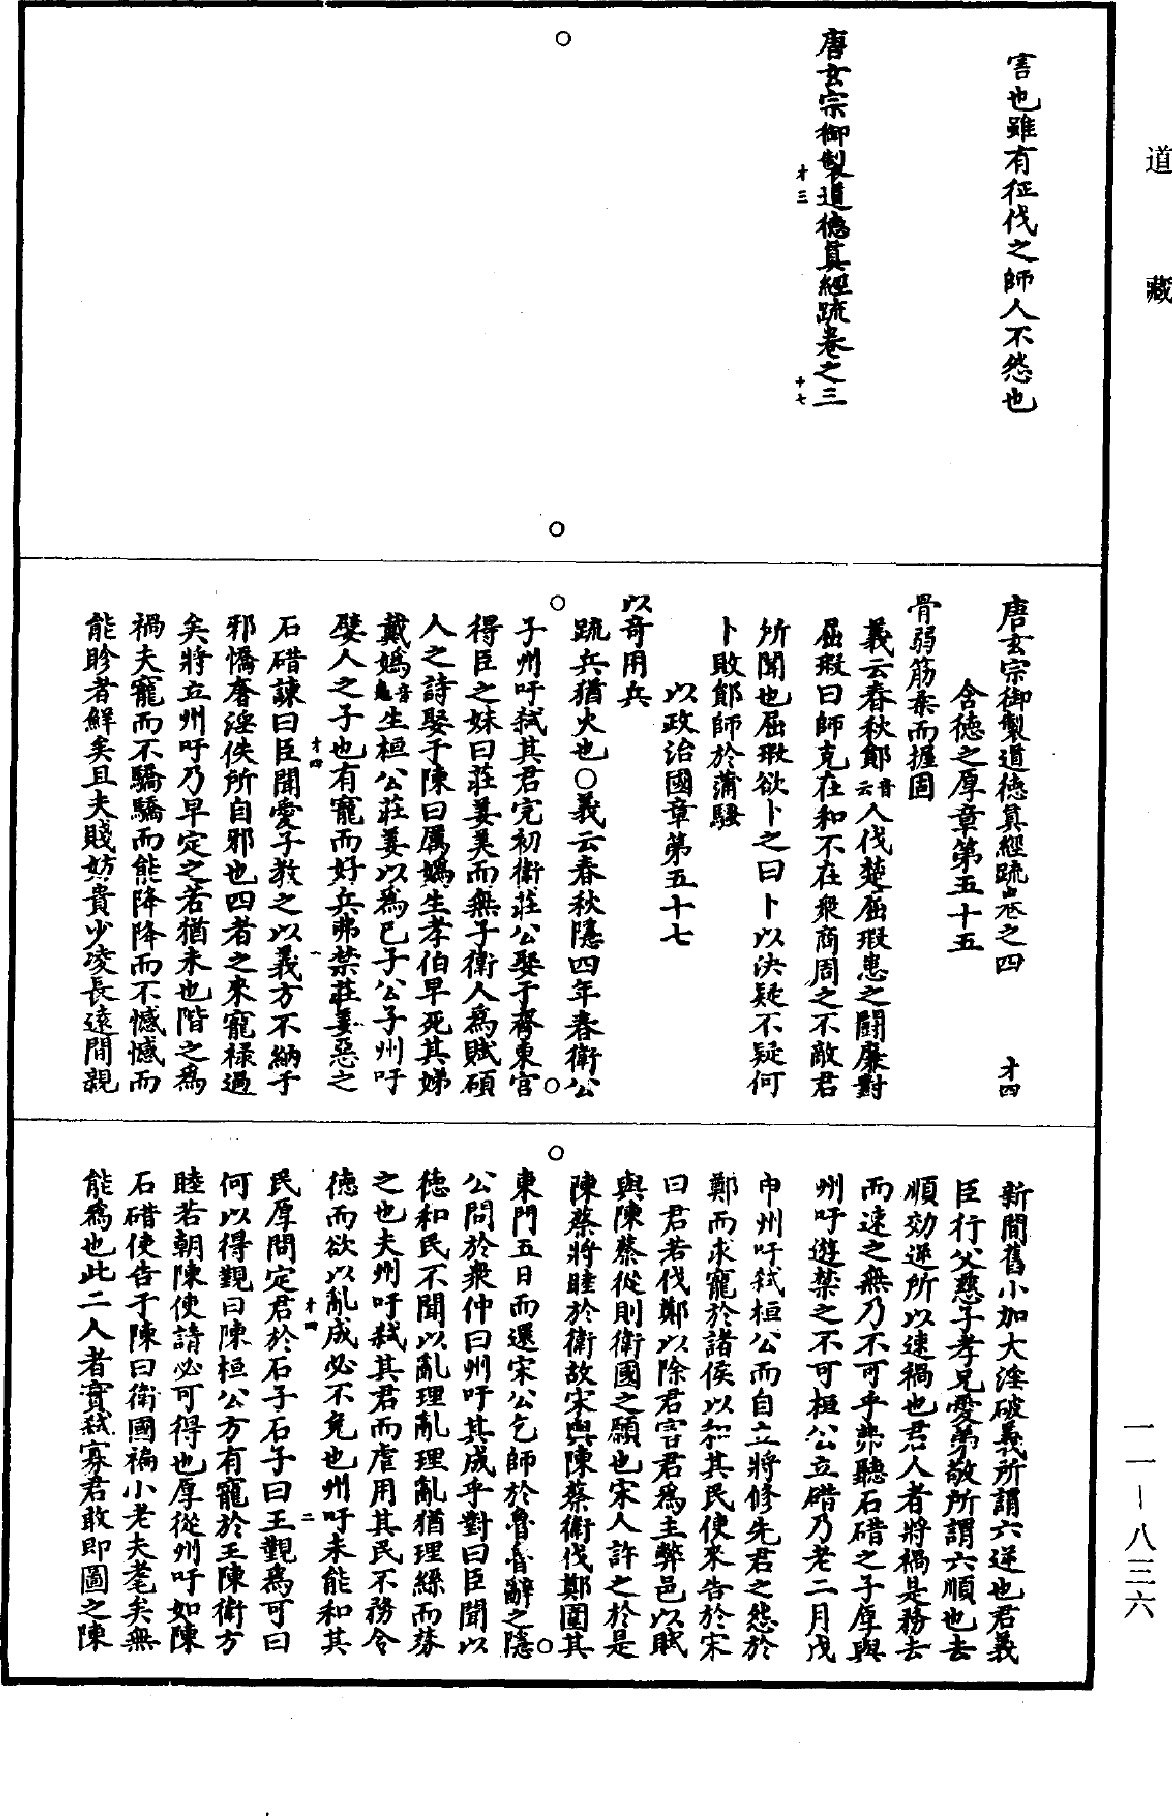 道藏
害也雖有征伐之師人不怨也
唐玄宗御製道德真經疏卷之三
才三
十七
唐玄宗御製道德真經疏卷之四
才四
含德之厚章第五十五
骨弱筋柔而握固
義云春秋鄖音云人伐楚屈瑕患之鬪廉對
屈瑕曰師克在和不在衆商周之不敵君
所聞也屈瑕欲卜之曰卜以決疑不疑何
卜敗鄖師於蒲騷
以政治國章第五十七
以奇用兵
疏兵猶火也○義云春秋隱四年春衛公
子州吁弒其君完初衛莊公娶于齊東宮
得臣之妹曰莊姜美而無子衛人為賦碩
人之詩娶于陳曰厲媯生孝伯早死其娣
戴媯音生桓公莊姜以為已子公子州吁
嬖人之子也有寵而好兵弗禁莊姜惡之
才四
一
石碏諫曰臣聞愛子教之以義方不納于
邪憍奢淫佚所自邪也四者之來寵祿過
矣將立州吁乃早定之若猶未也階之為
禍夫寵而不驕驕而能降降而不憾憾而
能眕者鮮矣且夫賤妨貴少凌長遠間親
新間舊小加大淫破義所謂六逆也君義
臣行父慈子孝兄愛弟敬所謂六順也去
順効逆所以速禍也君人者將禍是務去
而速之無乃不可乎弗聽石碏之子厚與
州吁遊禁之不可桓公立碏乃老二月戊
申州吁弒桓公而自立將修先君之怨於
鄭而求寵於諸侯以和其民使來告於宋
曰君若伐鄭以除君害君為主弊邑以賦
與陳蔡從則衛國之願也宋人許之於是
陳蔡將睦於衛故宋與陳蔡衛伐鄭圍其
東門五日而還宋公乞師於魯魯辭之隱
公問於衆仲曰州吁其成乎對曰臣聞以
德和民不聞以亂理亂理亂猶理絲而棼
之也夫州吁弒其君而虐用其民不務令
德而欲以亂成必不免也州吁未能和其
才四
二
民厚問定君於石子石子曰王覲為可曰
何以得覲曰陳桓公方有寵於王陳衛方
睦若朝陳使請必可得也厚從州吁如陳
石碏使告于陳曰衛國褊小老夫耄矣無
能為也此二人者實弒寡君敢即圖之陳
一一—八三六